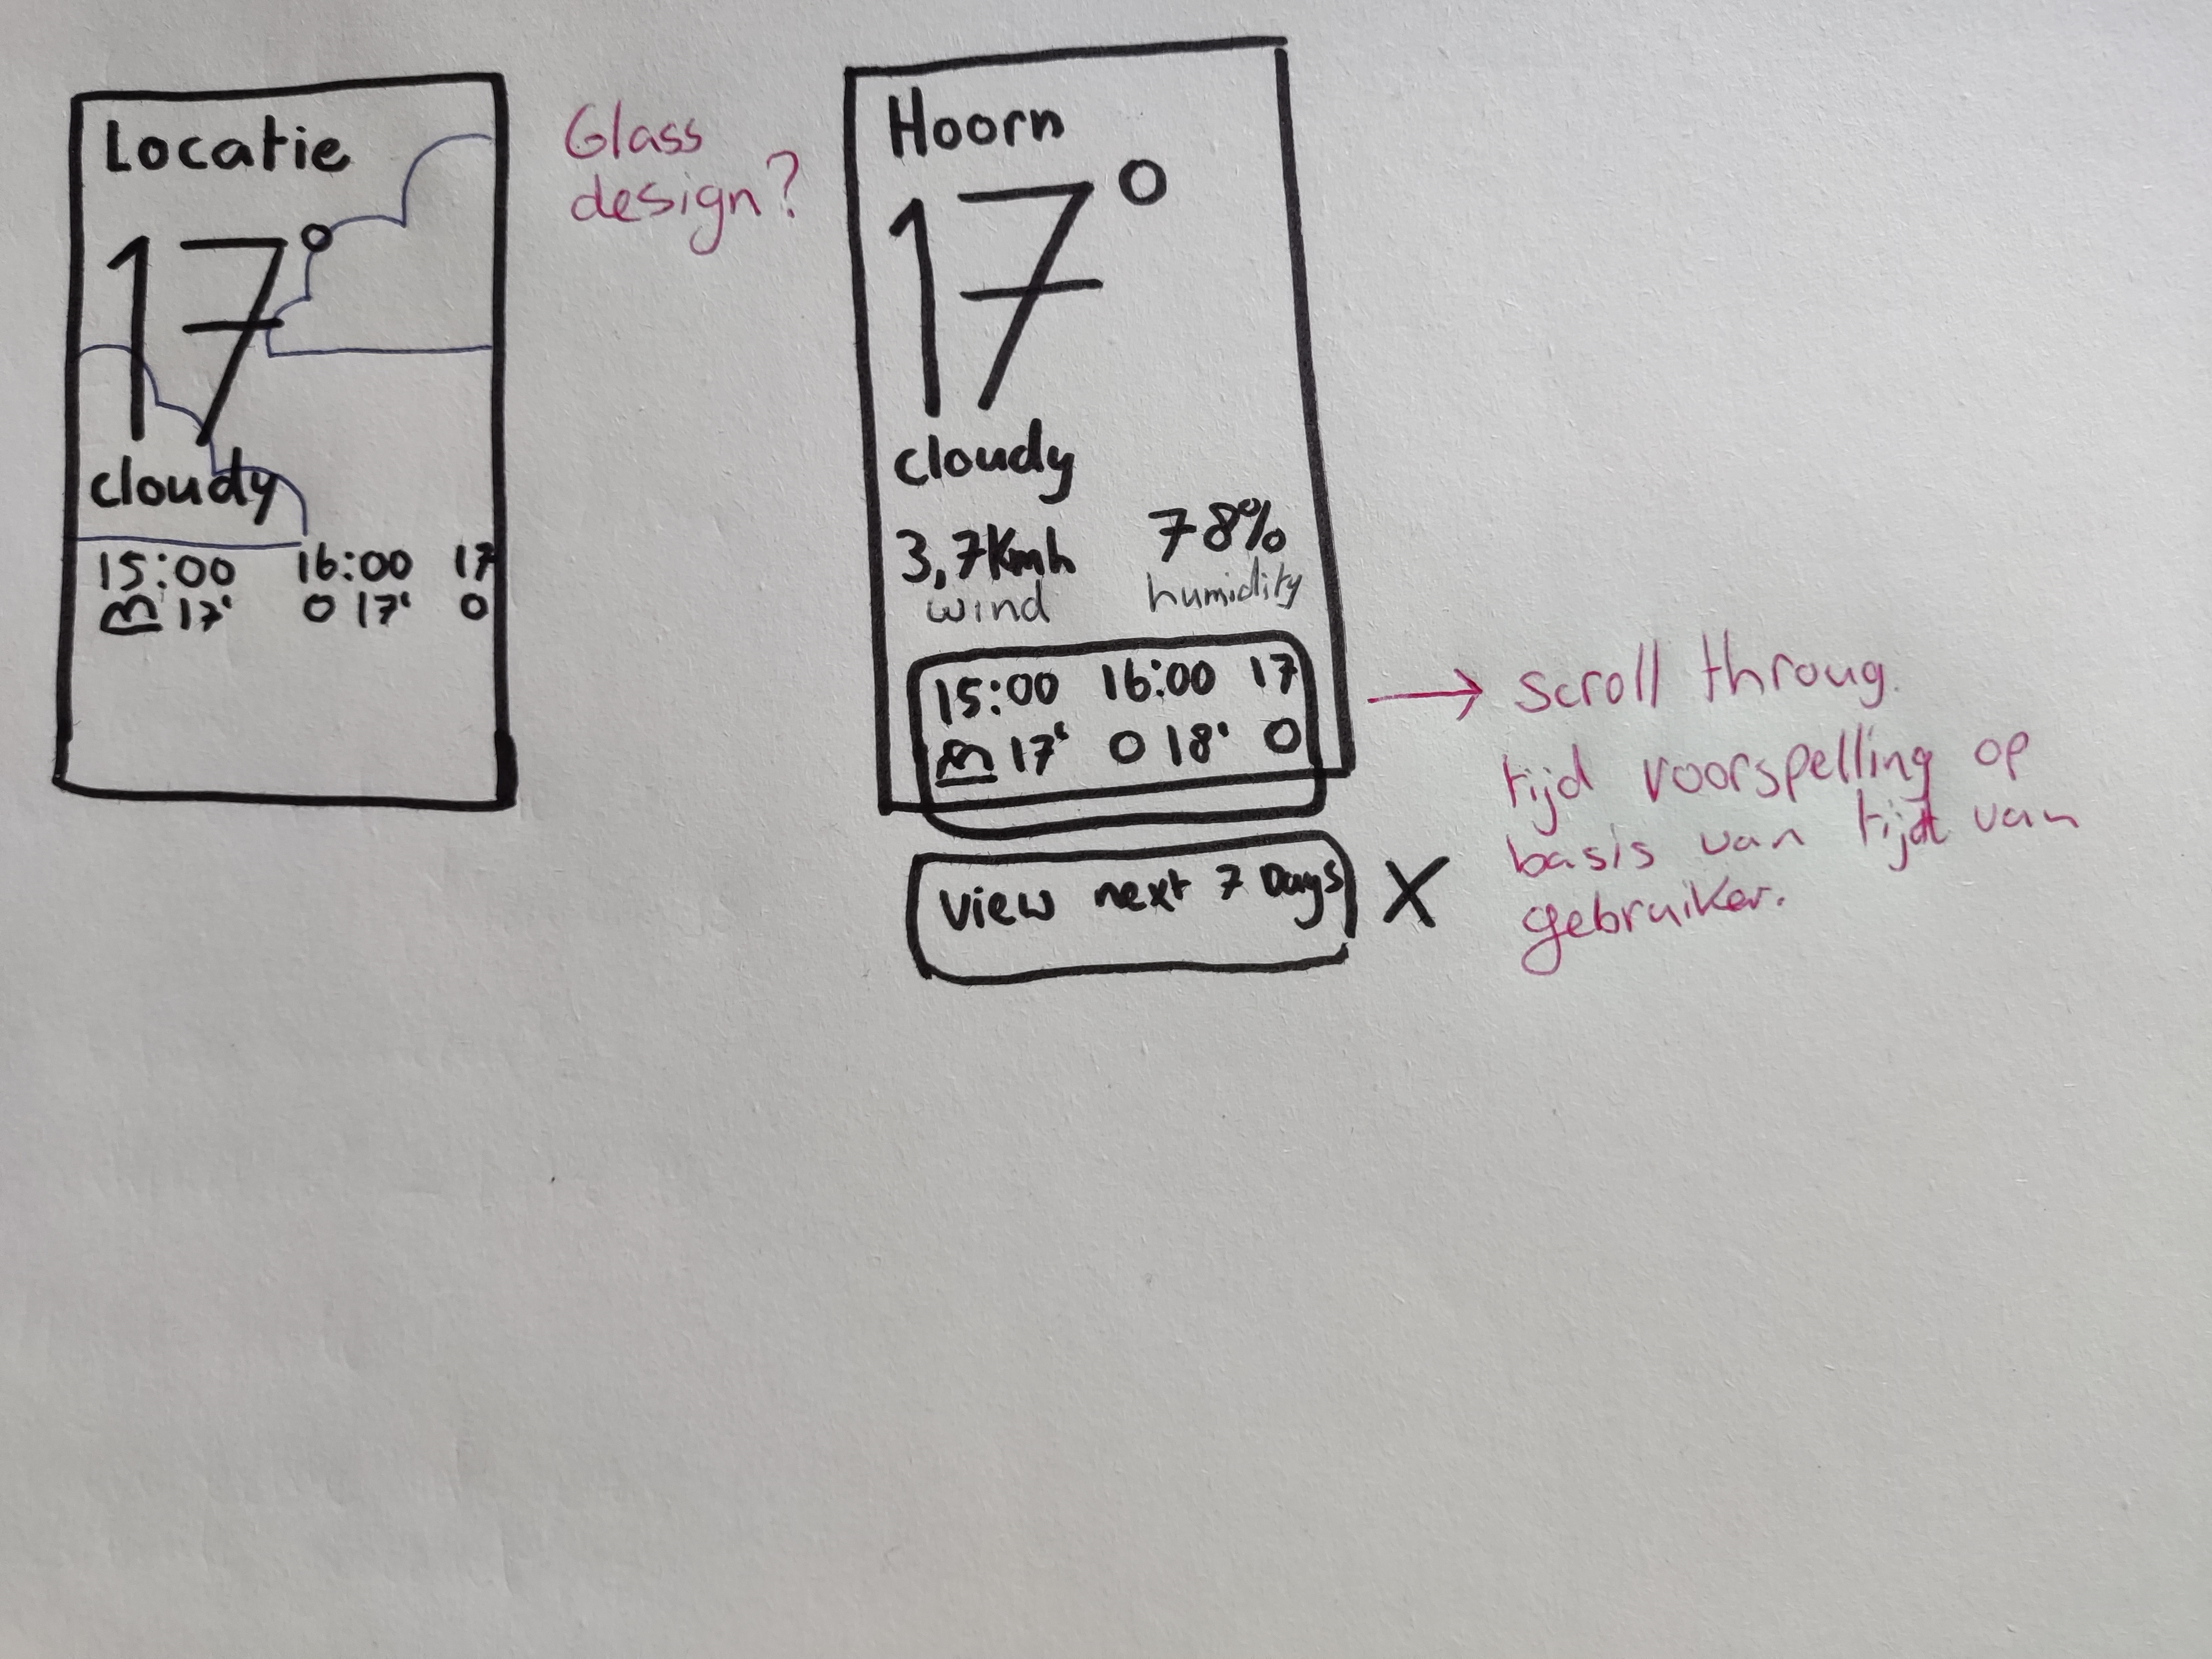 Locatie
17°
cloudy
15:00 16:00 17
17° 0 17° 0
Glass
design?
Hoorn
17°
cloudy
3,7Kmh 78%
wind humidity
15:00 16:00 17
17° 0 18° 0
view next 7 Days X
scroll throug.
tijd voorspelling op
basis van tijd van
gebruiker.